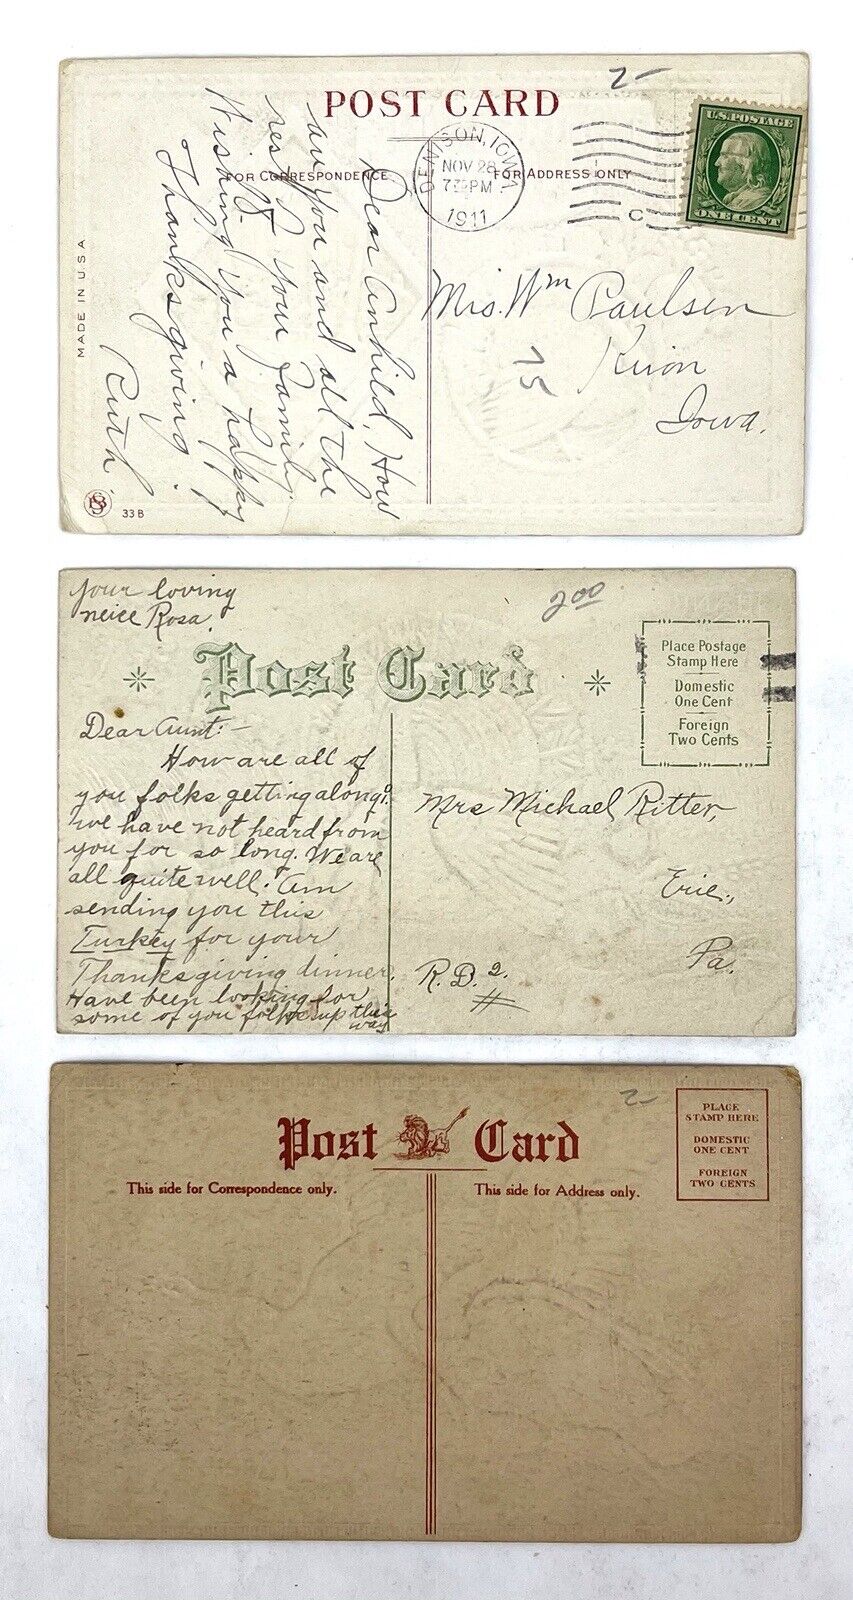 2-
POST CARD
FOR CORRESPONDENCE
FOR ADDRESS ONLY
DENISON, IOWA
NOV 28
7 PM
1911
C
U.S. POSTAGE
ONE CENT
Dear Anhild, How
are you and all the
rest of your family.
Wishing you a happy
Thanksgiving.
Ruth
Mrs. Wm Paulsen
Kiron
Iowa.
75
MADE IN U.S.A
33 B
your loving
neice Rosa.
200
Post Card
Place Postage
Stamp Here
Domestic
One Cent
Foreign
Two Cents
Dear Aunt:-
How are all of
you folks getting along?
we have not heard from
you for so long. We are
all quite well. I am
sending you this
Turkey for your
Thanksgiving dinner.
Have been looking for
some of you folks up this
way
Mrs Michael Ritter,
Erie,
Pa.
R.D. 2.
#
2-
Post Card
This side for Correspondence only.
This side for Address only.
PLACE
STAMP HERE
DOMESTIC
ONE CENT
FOREIGN
TWO CENTS